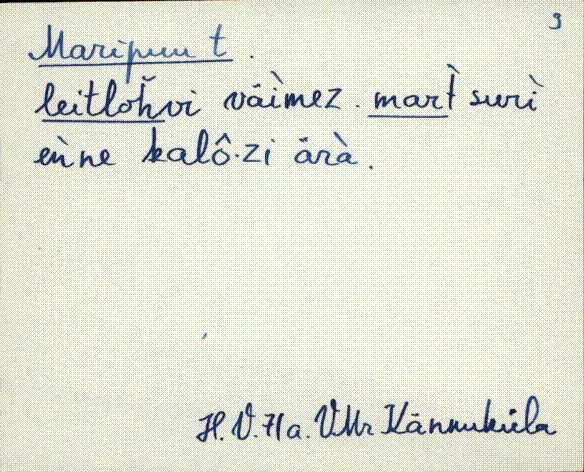 9
Maripuu t.
leitloh̆vi väìmez. mart̀ surì
eǹne kalô·zi ärà.
H. V. Ha. VMr Kännuküla